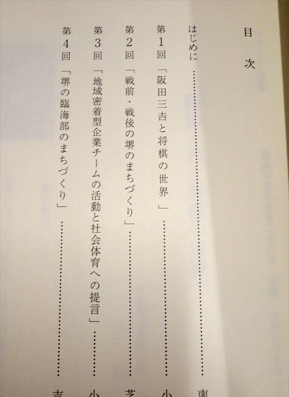 目次
はじめに……………………………………南
第1回「阪田三吉と将棋の世界」……………………小
第2回「戦前・戦後の堺のまちづくり」………………芝
第3回「地域密着型企業チームの活動と社会体育への提言」……小
第4回「堺の臨海部のまちづくり」…………………吉